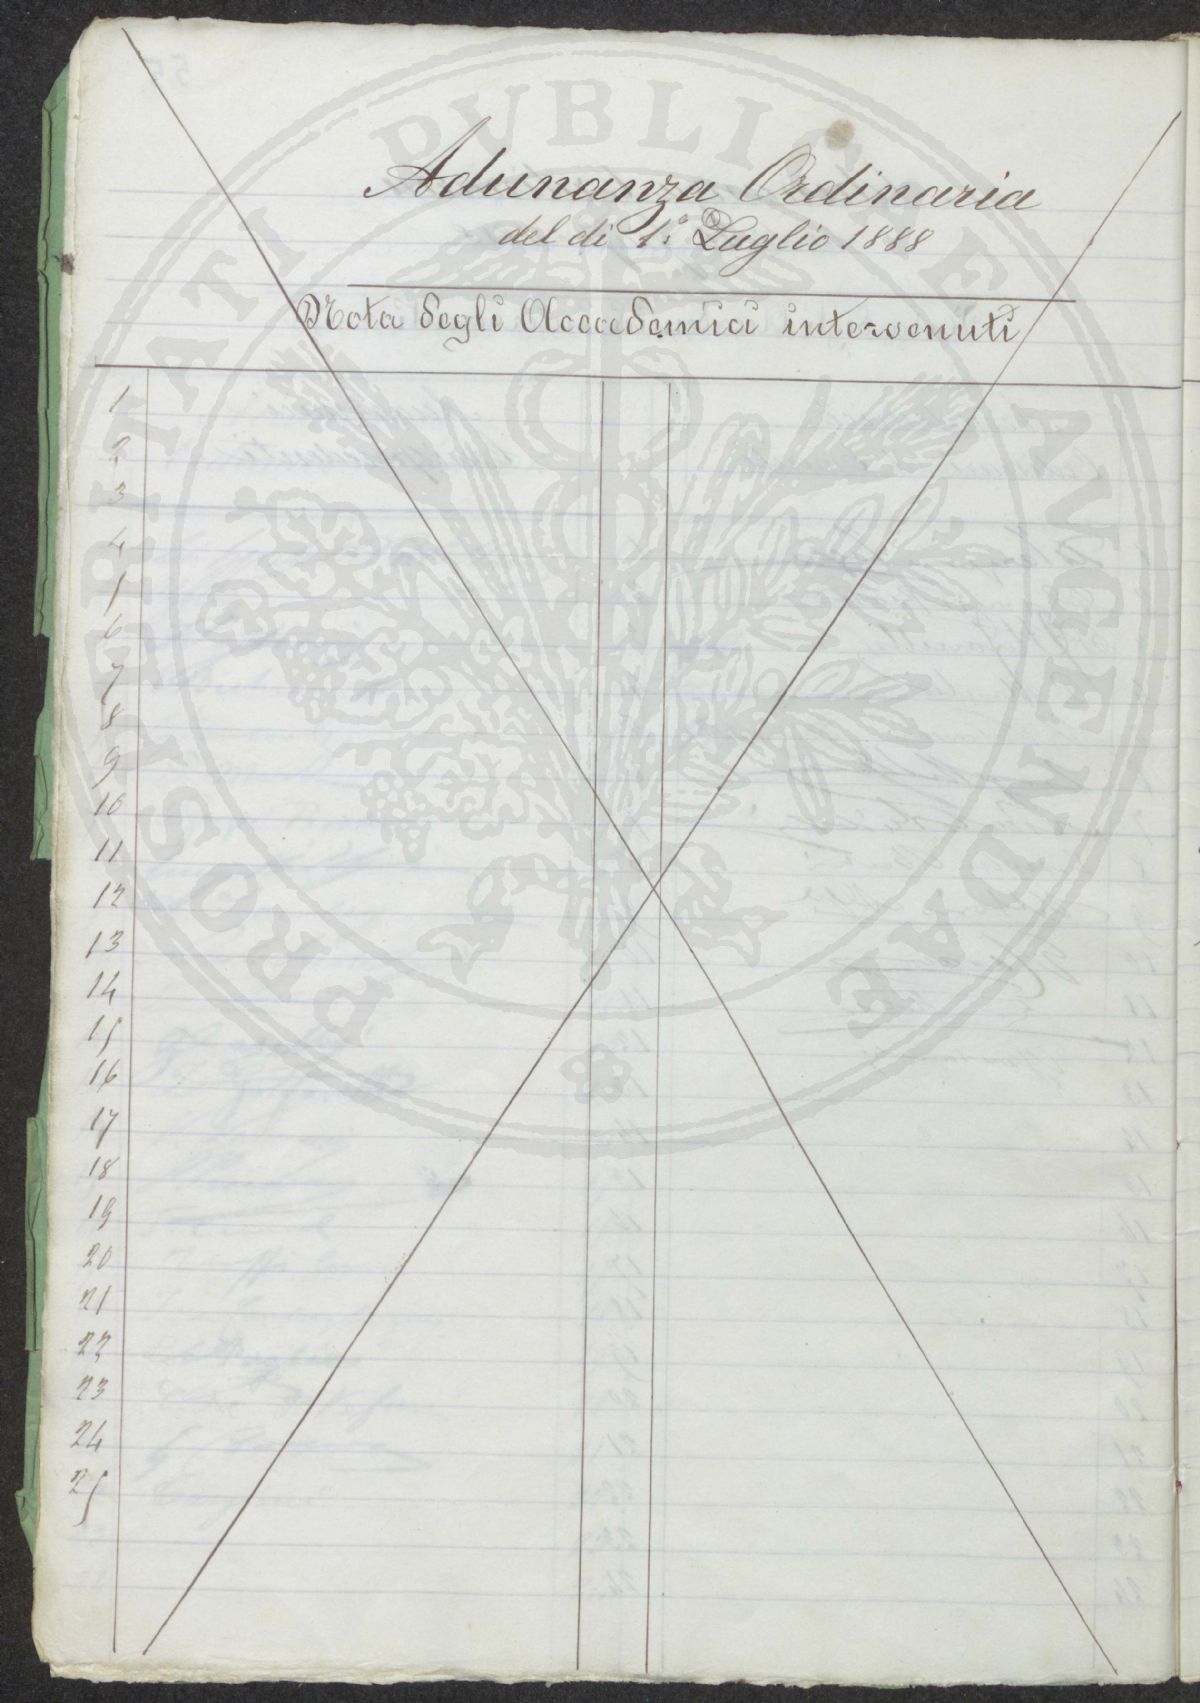 Adunanza Ordinaria
del di 1.° Luglio 1888
Nota degli Accademici intervenuti
1
2
3
4
5
6
7
8
9
10
11
12
13
14
15
16
17
18
19
20
21
22
23
24
25
PROSPERITATI PUBLICAE AUGENDAE